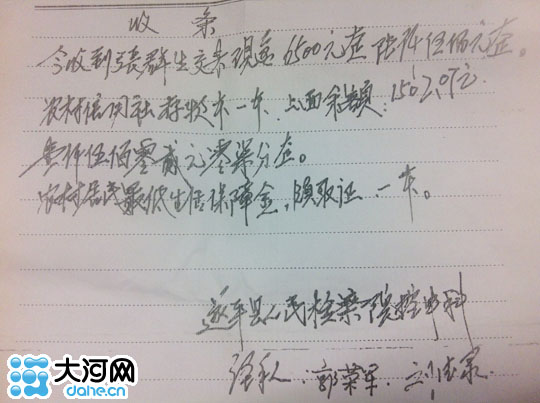 收条
今收到張群生交来现金6500元整 陆仟伍佰元整。
农村信用社存款本一本,上面余额:1502.07元.
壹仟伍佰零贰元零柒分整。
农村居民最低生活保障金,领取证 一本。
遂平县人民检察院控申科
经手人:郭荣军
大河网
dahe.cn